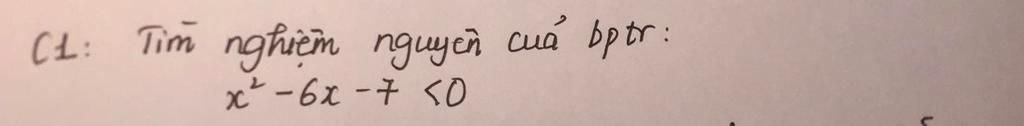 C1: Tìm nghiệm nguyên của bptr:
x² - 6x - 7 < 0